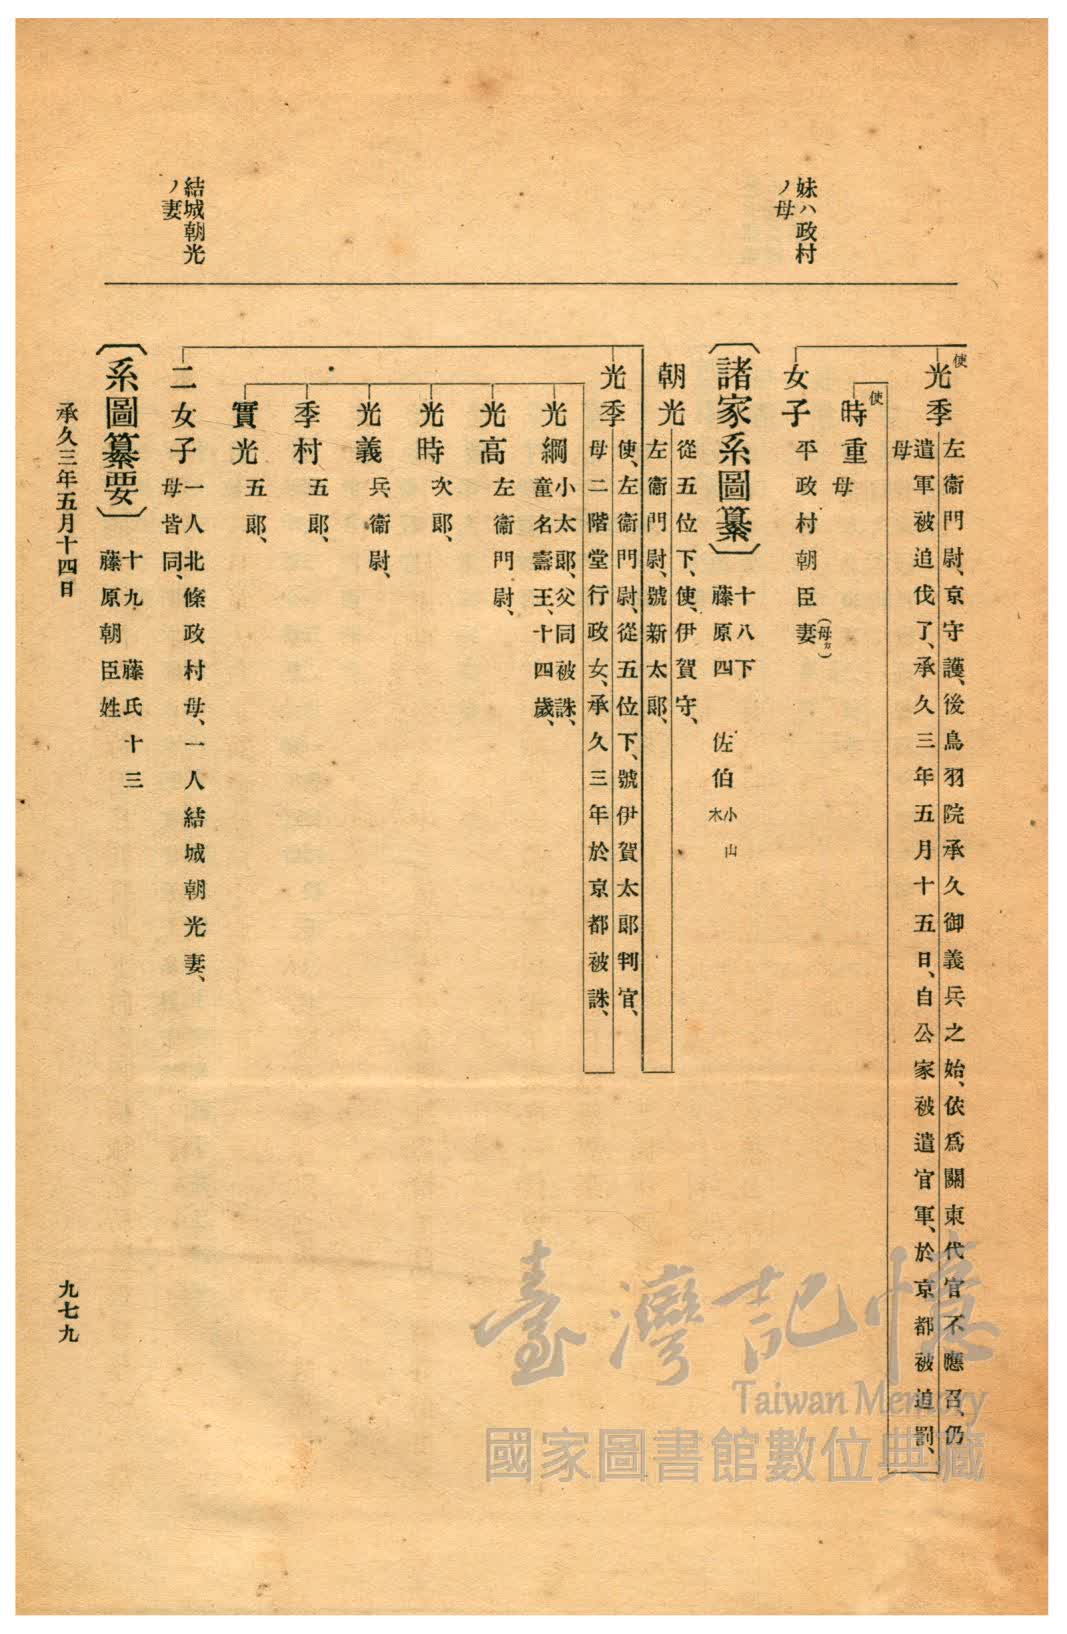 妹ハ政村
ノ母
結城朝光
ノ妻
使
光季
左衞門尉、京守護、後鳥羽院承久御義兵之始、依爲關東代官不應召、仍
遣軍被追伐了、承久三年五月十五日、自公家被遣官軍、於京都被追罰、
母
使
時重
母
女子
平政村朝臣妻(母カ)
〔諸家系圖纂〕
十八下
藤原四
佐伯
小山
木
朝光
從五位下、使、伊賀守、
左衞門尉、號新太郞、
光季
使、左衞門尉、從五位下、號伊賀太郞判官、
母二階堂行政女、承久三年於京都被誅、
光綱
小太郞、父同被誅、
童名壽王、十四歲、
光高
左衞門尉、
光時
次郞、
光義
兵衞尉、
季村
五郞、
實光
五郞、
二女子
一人北條政村母、一人結城朝光妻、
母皆同、
〔系圖纂要〕
十九 藤氏十三
藤原朝臣姓
承久三年五月十四日
九七九
臺灣記憶
Taiwan Memory
國家圖書館數位典藏